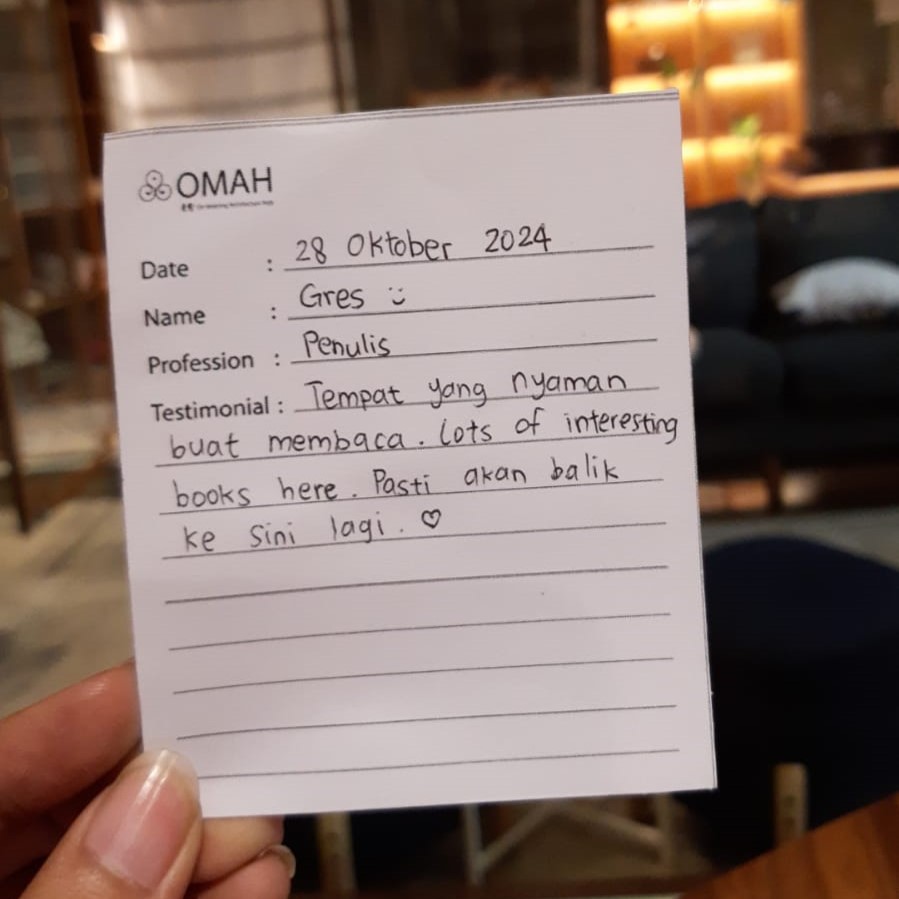 OMAH
Date : 28 Oktober 2024
Name : Gres
Profession : Penulis
Testimonial : Tempat yang nyaman
buat membaca. Lots of interesting
books here. Pasti akan balik
ke sini lagi. ♡